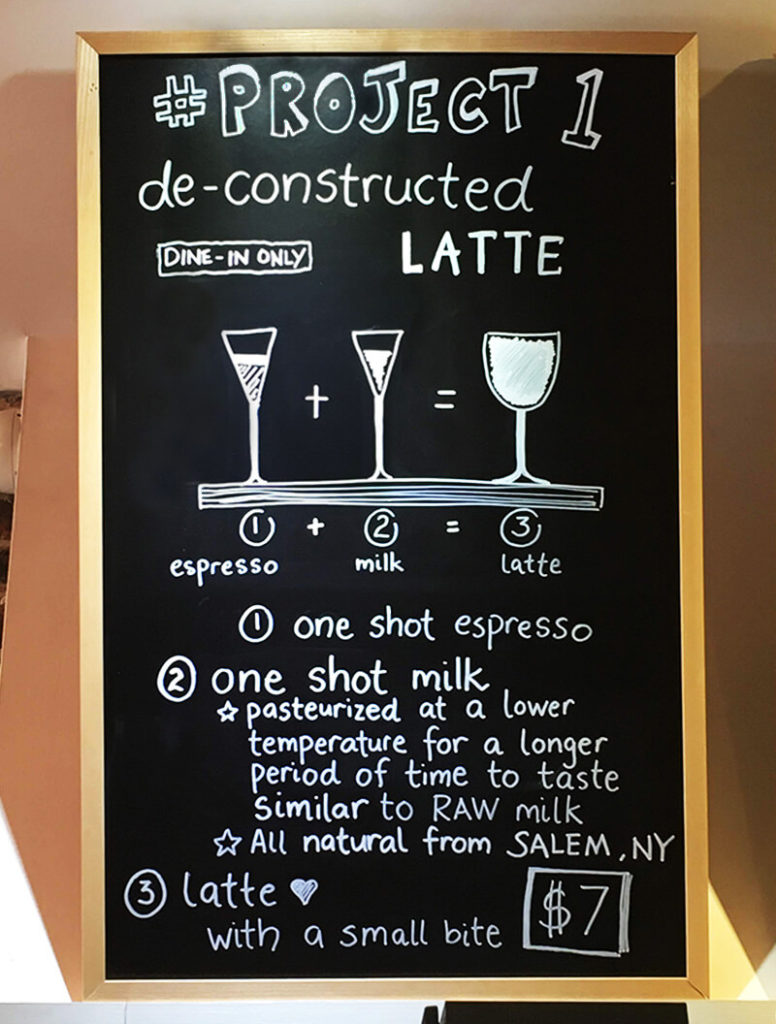 #PROJECT 1
de-constructed
DINE-IN ONLY LATTE
+ =
① + ② = ③
espresso milk latte
① one shot espresso
② one shot milk
☆ pasteurized at a lower
temperature for a longer
period of time to taste
similar to RAW milk
☆ All natural from SALEM, NY
③ latte ♥
with a small bite $7